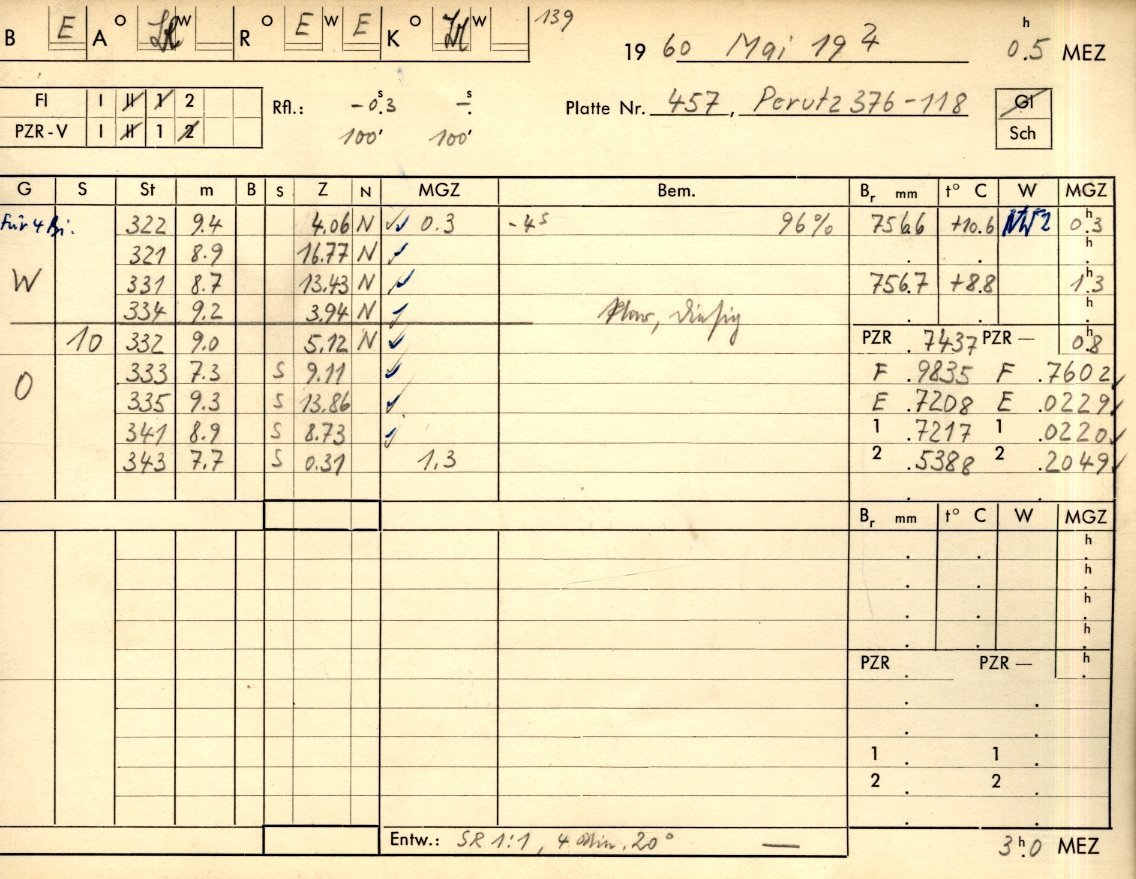 B E A O W R O E W E K O W 139
19 60 Mai 19 h 0.5 MEZ
Fl I II 1 2 Rfl.: -0.3 s - s Platte Nr. 457, Perutz 376-118 Gl
PZR-V I II 1 2 100' 100' Sch
G S St m B S Z N MGZ Bem. Br mm t° C W MGZ
für 4 322 9.4 4.06 N 0.3 -4s 96% 756.6 +10.6 NW2 0.3 h
321 8.9 16.77 N h
W 331 8.7 13.43 N 756.7 +8.8 1.3 h
334 9.2 3.94 N klar, diesig h
10 332 9.0 5.12 N PZR .7437 PZR — 0.8 h
O 333 7.3 S 9.11 F .9835 F .7602
335 9.3 S 13.86 E .7208 E .0229
341 8.9 S 8.73 1 .7217 1 .0220
343 7.7 S 0.31 1.3 2 .5388 2 .2049
Br mm t° C W MGZ
h
h
h
h
PZR PZR — h
1 1
2 2
Entw.: SR 1:1, 4 Min. 20° — 3 h.0 MEZ